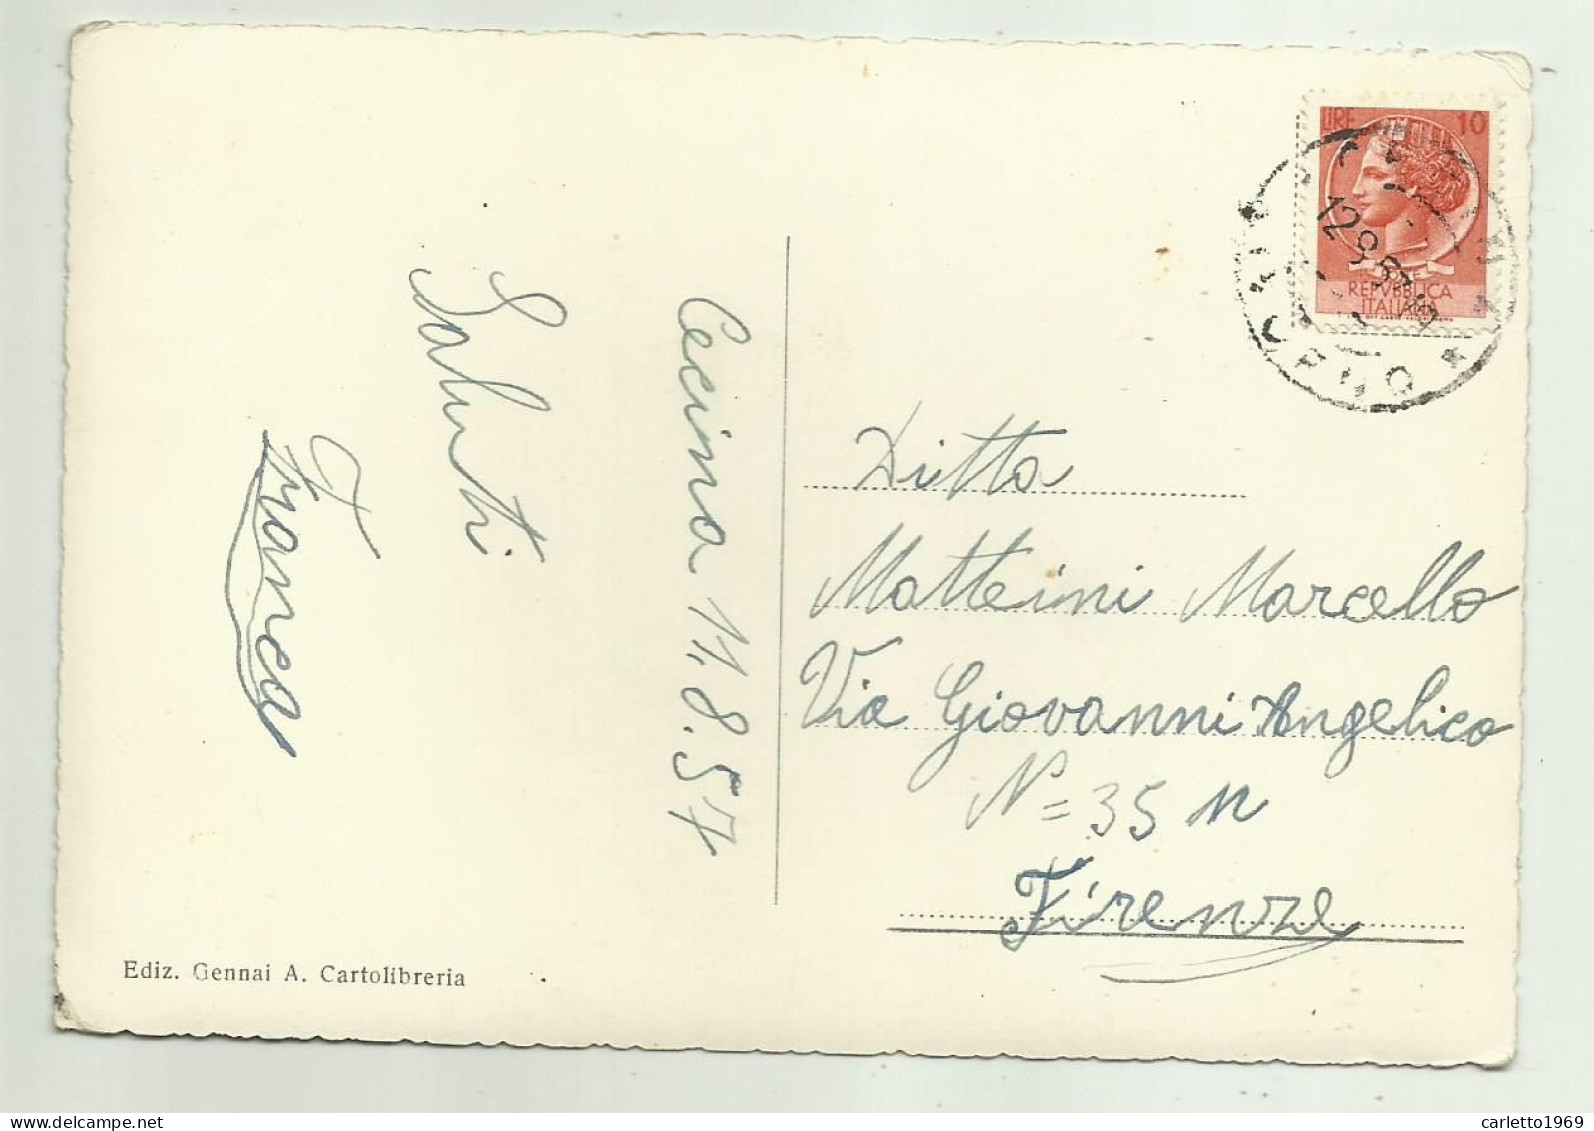 Cecina 11.8.57
Saluti
Franca
LIRE 10
REPVBBLICA
ITALIANA
12 8 57
Ditta
Matteini Marcello
Via Giovanni Angelico
N= 35 
Firenze
Ediz. Gennai A. Cartolibreria
delcampe.net
carletto1969